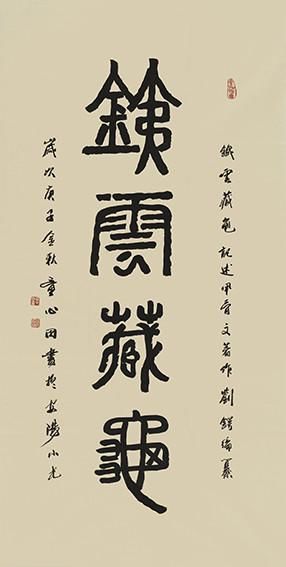 銕雲藏龜 記述甲骨文著作 劉鶚編纂
銕雲藏龜
歲次庚子金秋 童心田書於安陽小屯